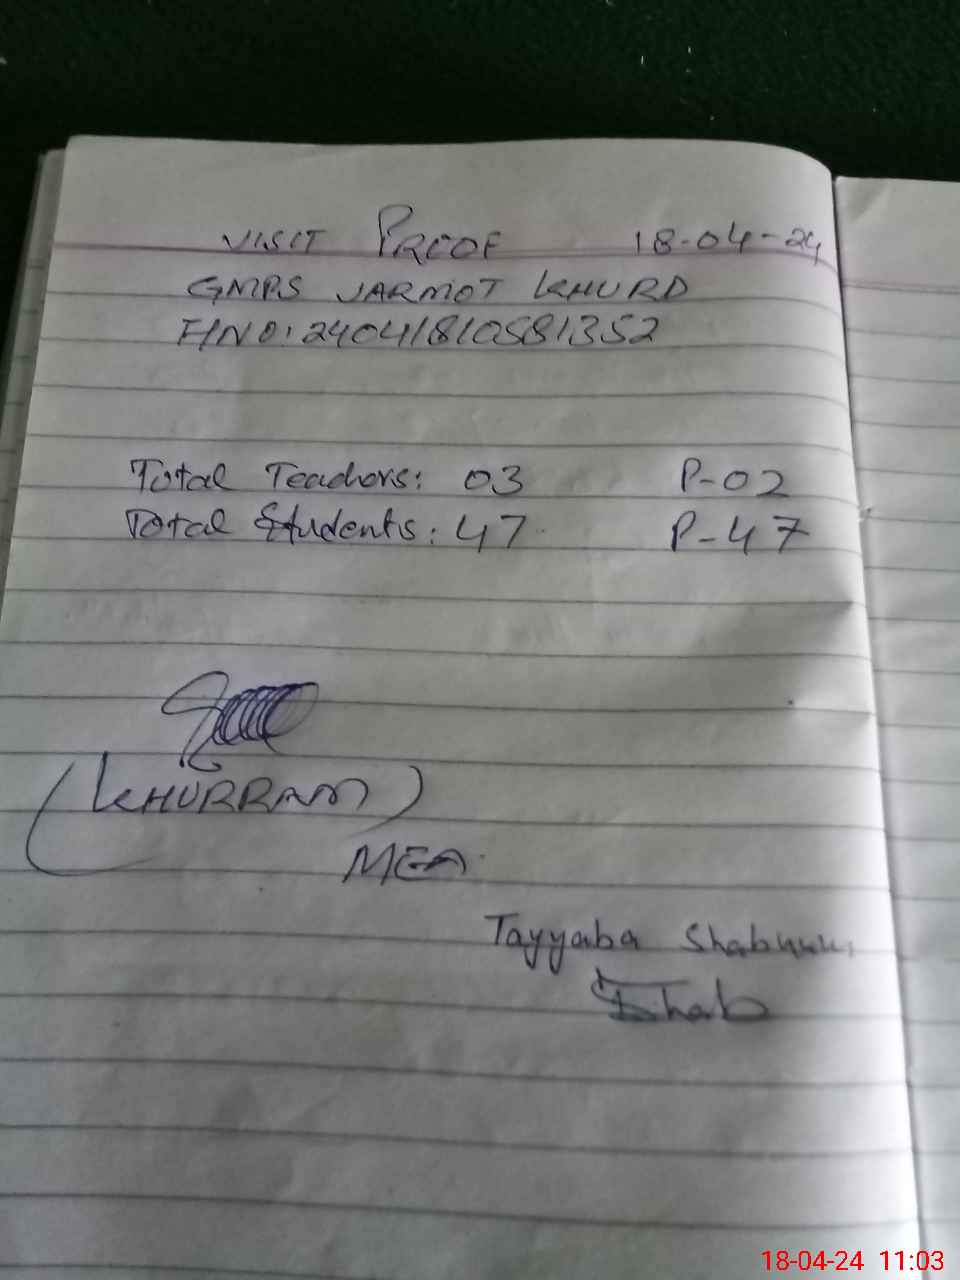 VISIT PROOF 18-04-24
GMPS JARMOT KHURD
F/NO: 24041810581352
Total Teachors: 03 P-02
Total Students: 47 P-47
(KHURRAM)
MEA
Tayyaba
Shab
18-04-24 11:03